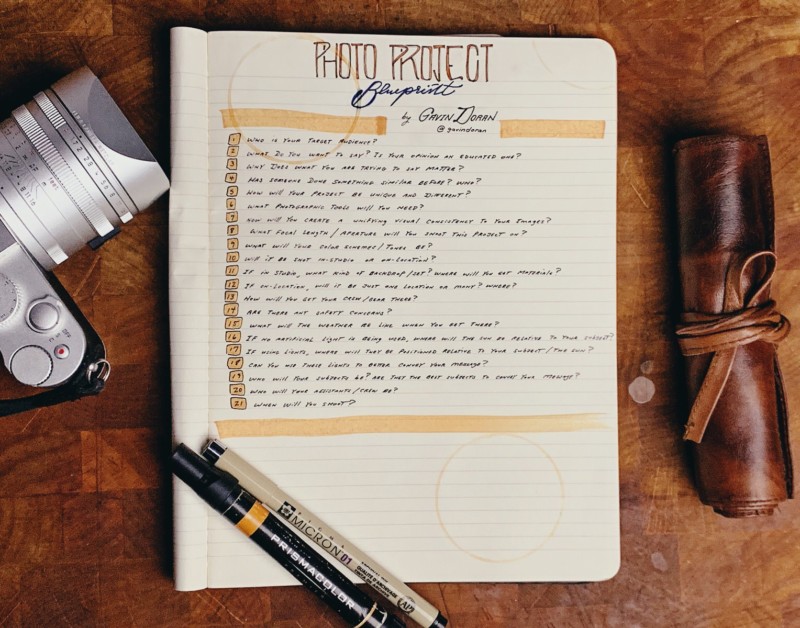 PHOTO PROJECT
Blueprint
by GAVIN DORAN
@gavindoran
1 WHO IS YOUR TARGET AUDIENCE?
2 WHAT DO YOU WANT TO SAY? IS YOUR OPINION AN EDUCATED ONE?
3 WHY DOES WHAT YOU ARE TRYING TO SAY MATTER?
4 HAS SOMEONE DONE SOMETHING SIMILAR BEFORE? WHO?
5 HOW WILL YOUR PROJECT BE UNIQUE AND DIFFERENT?
6 WHAT PHOTOGRAPHIC TOOLS WILL YOU NEED?
7 HOW WILL YOU CREATE A UNIFYING VISUAL CONSISTENCY TO YOUR IMAGES?
8 WHAT FOCAL LENGTH / APERTURE WILL YOU SHOOT THIS PROJECT ON?
9 WHAT WILL YOUR COLOR SCHEMES / TONES BE?
10 WILL IT BE SHOT IN-STUDIO OR ON-LOCATION?
11 IF IN STUDIO, WHAT KIND OF BACKDROP/SET? WHERE WILL YOU GET MATERIALS?
12 IF ON-LOCATION, WILL IT BE JUST ONE LOCATION OR MANY? WHERE?
13 HOW WILL YOU GET YOUR CREW/GEAR THERE?
14 ARE THERE ANY SAFETY CONCERNS?
15 WHAT WILL THE WEATHER BE LIKE WHEN YOU GET THERE?
16 IF NO ARTIFICIAL LIGHT IS BEING USED, WHERE WILL THE SUN BE RELATIVE TO YOUR SUBJECT?
17 IF USING LIGHTS, WHERE WILL THEY BE POSITIONED RELATIVE TO YOUR SUBJECT / THE SUN?
18 CAN YOU USE THESE LIGHTS TO BETTER CONVEY YOUR MESSAGE?
19 WHO WILL YOUR SUBJECTS BE? ARE THEY THE BEST SUBJECTS TO CONVEY YOUR MESSAGE?
20 WHO WILL YOUR ASSISTANTS/CREW BE?
21 WHEN WILL YOU SHOOT?
MICRON 01
PRISMACOLOR